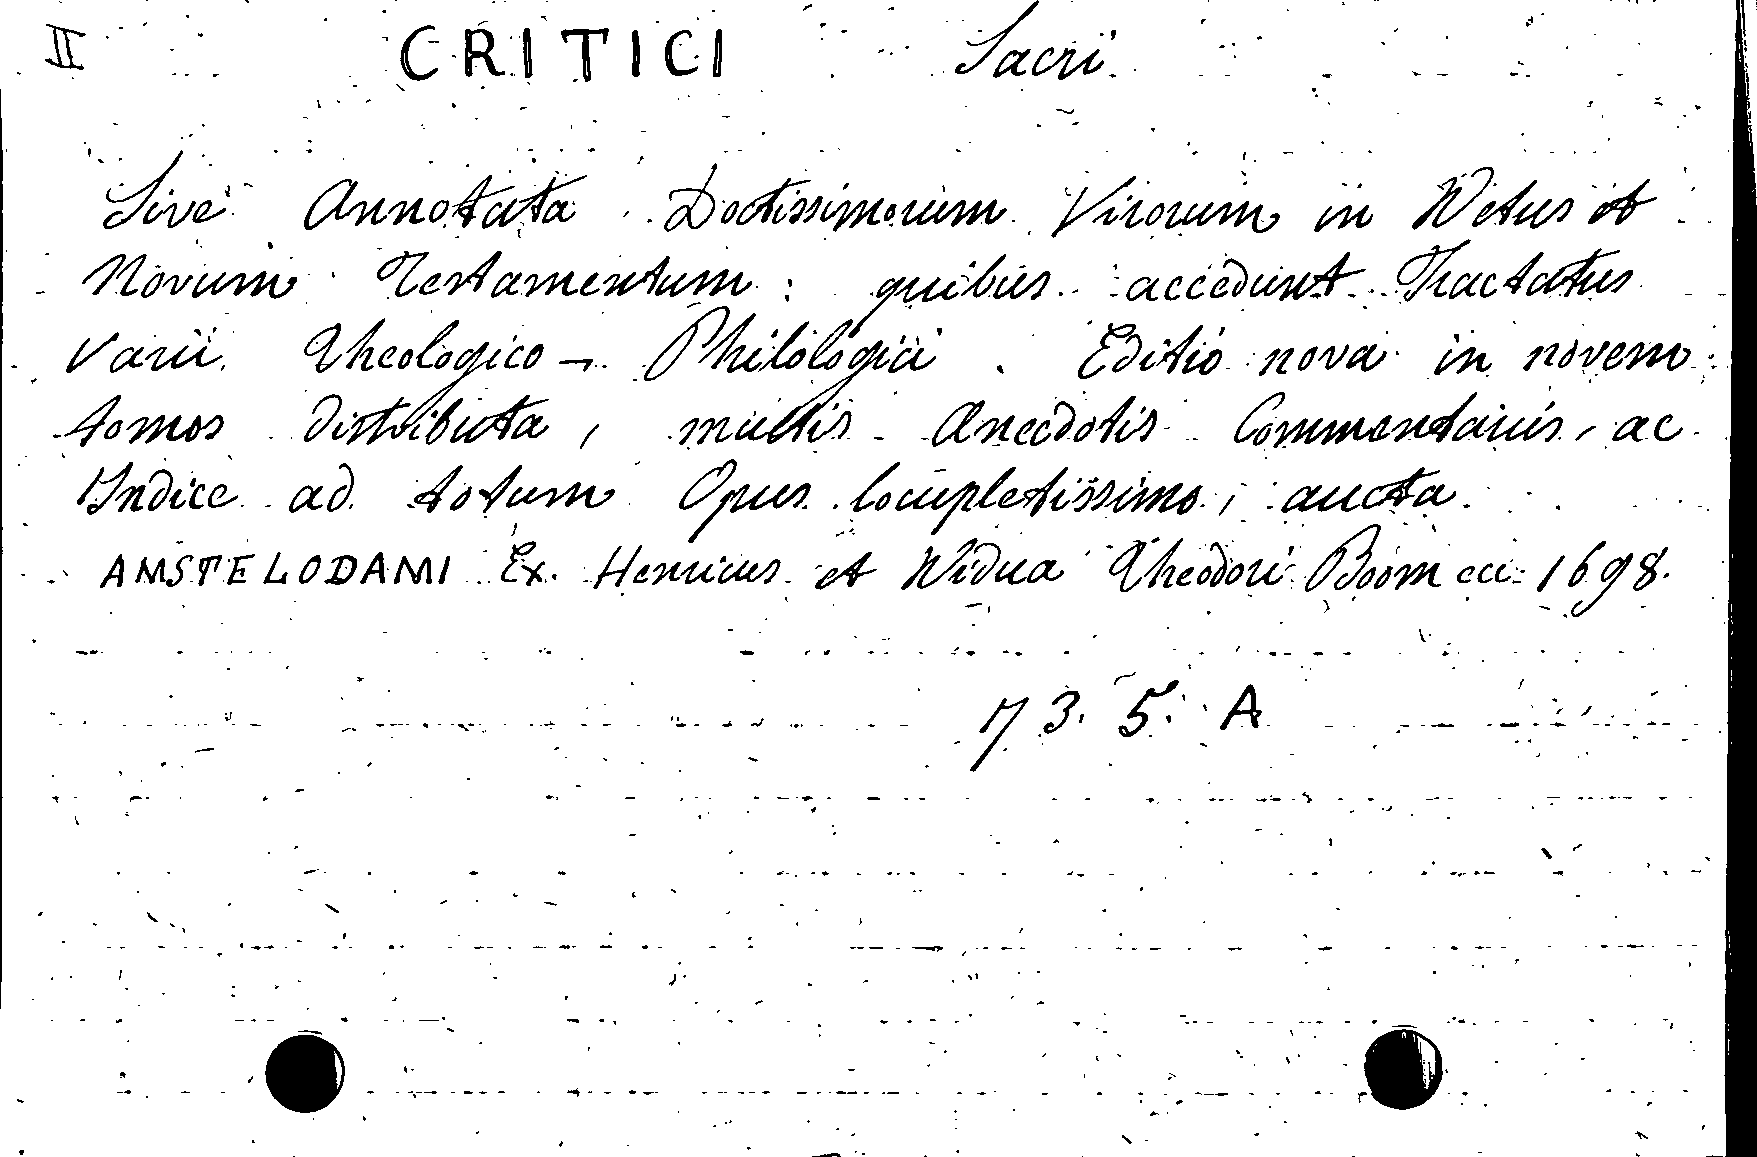 II CRITICI Sacri
Sive Annotata Doctissimorum Virorum in Vetus et
Novum Testamentum : quibus accedunt Tractatus
varii Theologico - Philologici . Editio nova in novem
tomos distributa, multis Anecdotis Commentariis, ac
Indice ad totum Opus locupletissimo, aucta.
AMSTELODAMI Ex. Henricus et Vidua Theodori Boom ecc. 1698.
73. 5. A